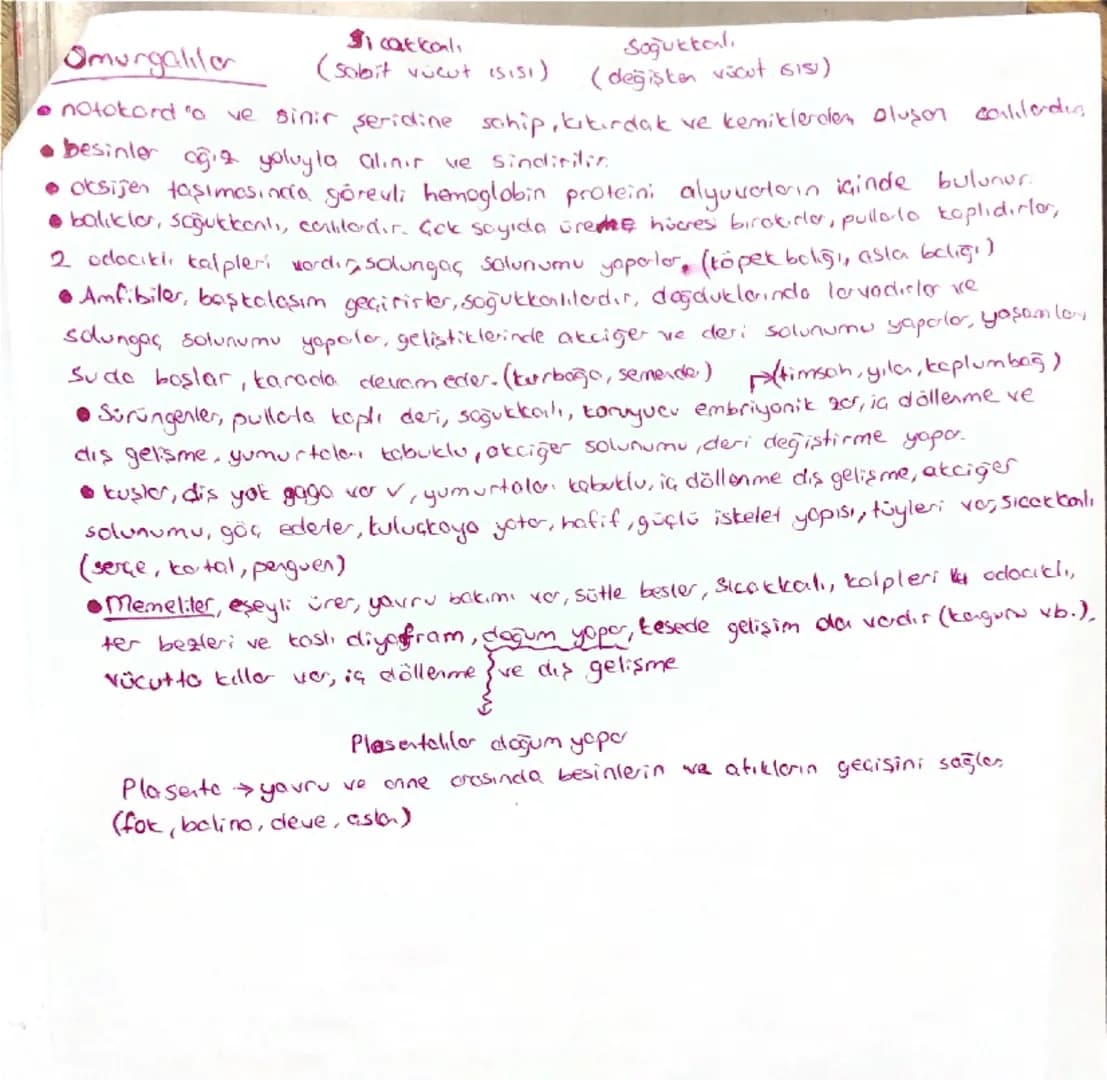 Omurgalılar
Sıcakkanlı
(sabit vücut ısısı)
Soğukkanlı
(değişken vücut ısısı)
• notokord'a ve sinir şeridine sahip, kıkırdak ve kemiklerden oluşan canlılardır.
• besinler ağız yoluyla alınır ve sindirilir.
• oksijen taşımasında görevli hemoglobin proteini alyuvarların içinde bulunur.
• balıklar, soğukkanlı, canlılardır. Çok sayıda üreme hücresi bırakırlar, pullarla kaplıdırlar,
2 odacıklı kalpleri vardır, solungaç solunumu yaparlar, (köpek balığı, aslan balığı)
• Amfibiler, başkalaşım geçirirler, soğukkanlılardır, doğduklarında larvadırlar ve
solungaç solunumu yaparlar, geliştiklerinde akciğer ve deri solunumu yaparlar, yaşamları
suda başlar, karada devam eder. (kurbağa, semender)
→(timsah, yılan, kaplumbağ)
• Sürüngenler, pullarla kaplı deri, soğukkanlı, koruyucu embriyonik zar, iç döllenme ve
dış gelişme, yumurtaları kabuklu, akciğer solunumu, deri değiştirme yapar.
• kuşlar, diş yok gaga var v, yumurtaları kabuklu, iç döllenme dış gelişme, akciğer
solunumu, göç ederler, kuluçkaya yatar, hafif, güçlü iskelet yapısı, tüyleri var, sıcakkanlı
(serçe, kartal, penguen)
• Memeliler, eşeyli ürer, yavru bakımı var, sütle besler, sıcakkalı, kalpleri 4 odacıklı,
ter bezleri ve kaslı diyafram, doğum yapar, kesede gelişim da vardır (kanguru vb.),
vücutta kıllar var, iç döllenme ve dış gelişme
Plasentalılar doğum yapar
Plasenta → yavru ve anne arasında besinlerin ve atıkların geçişini sağlar
(fok, balina, deve, aslan)